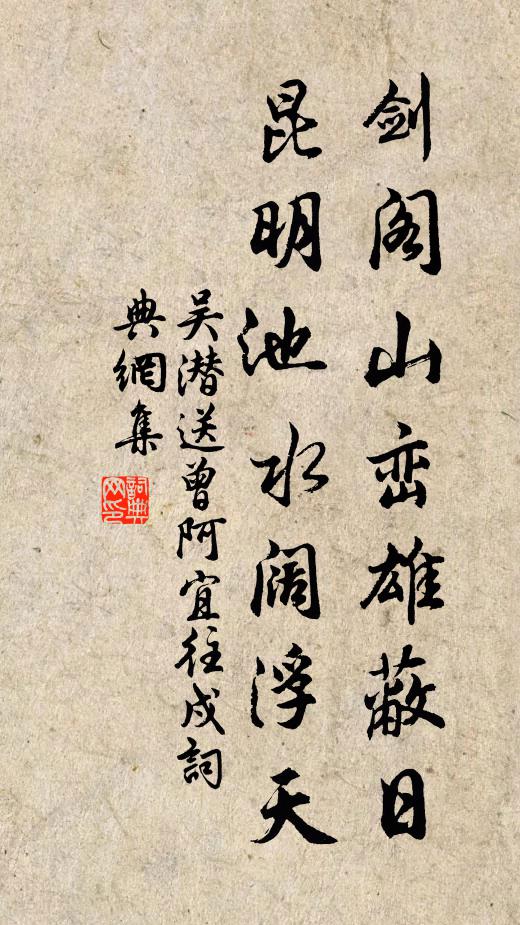 剑阁山峦雄蔽日
昆明池水阔浮天
吴潜送曾阿宜往戍詞
典網集
詞典网印